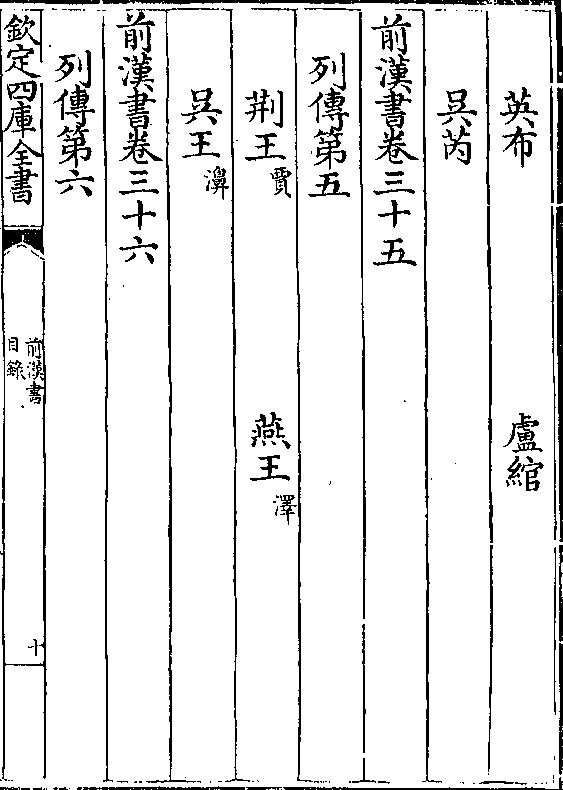 英布　盧綰
吳芮
前漢書卷三十五
列傳第五
荆王賈　燕王澤
吳王濞
前漢書卷三十六
列傳第六
欽定四庫全書　前漢書目錄　十